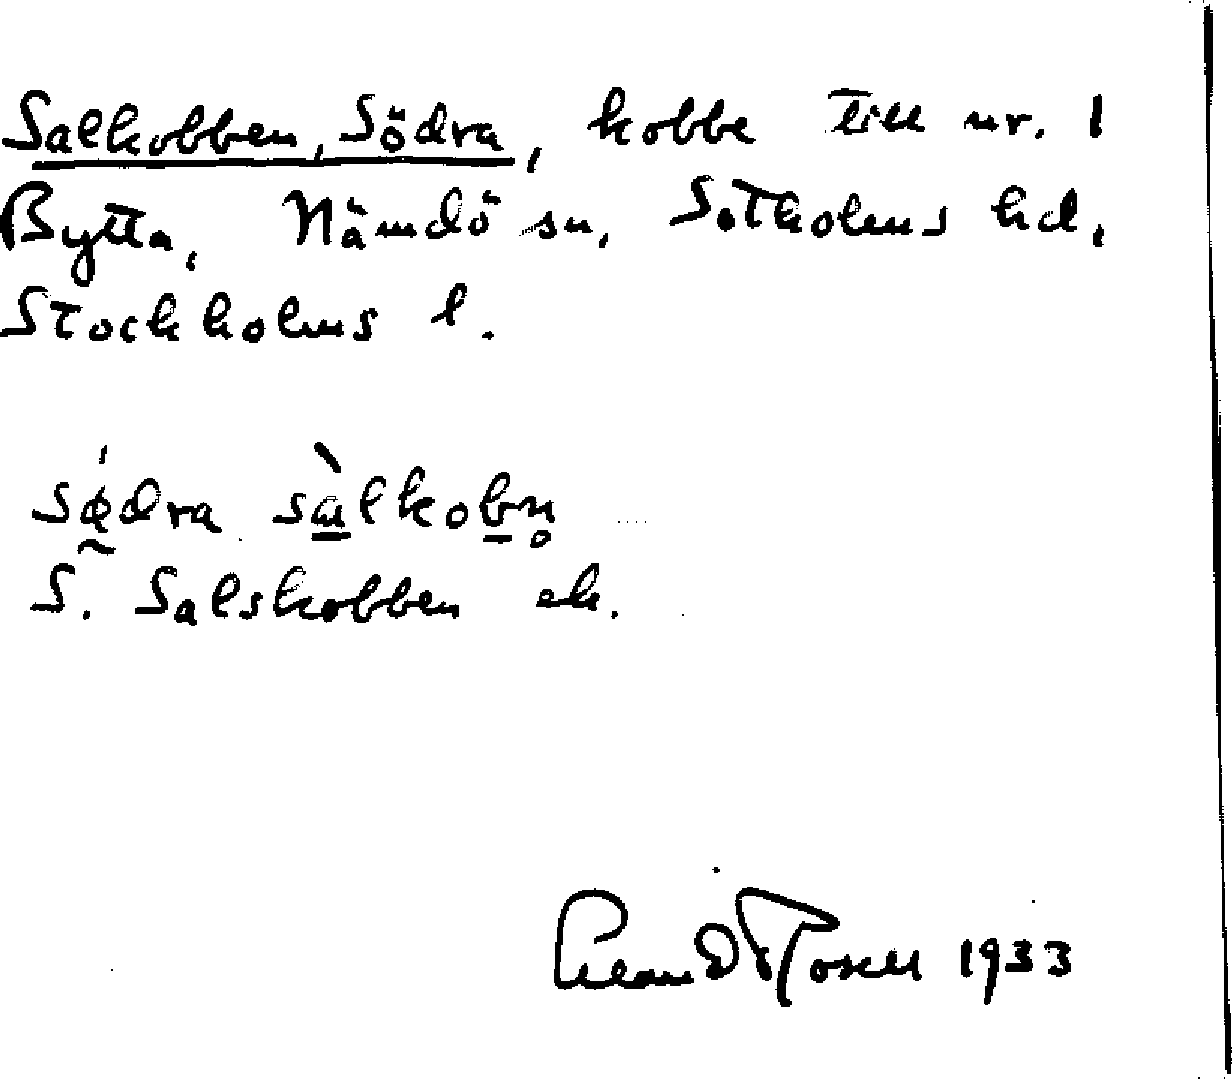 Salkobben, Södra, kobbe till nr. 1
Bytta, Nämdö sn, Sotholms hd,
Stockholms l.
sødra sàlkobn̥
S. Salskobben ek.
1933